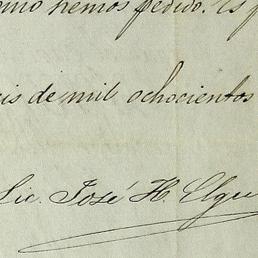 como hemos pedido. Es
de mil ochocientos
Lic. José H. Elgue